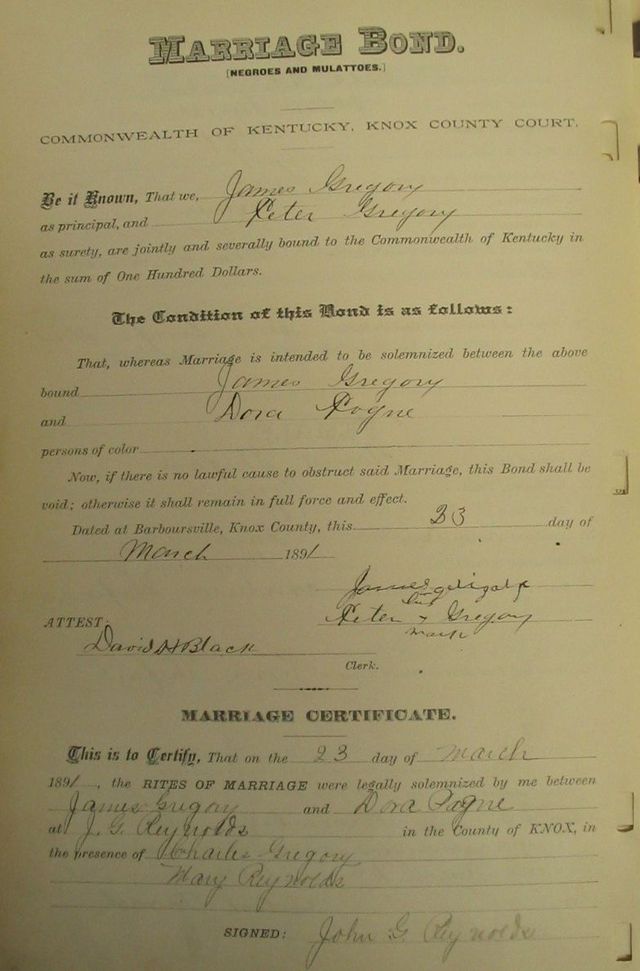 MARRIAGE BOND.
[NEGROES AND MULATTOES.]
COMMONWEALTH OF KENTUCKY, KNOX COUNTY COURT.
Be it Known, That we, James Gregory
as principal, and Peter Gregory
as surety, are jointly and severally bound to the Commonwealth of Kentucky in
the sum of One Hundred Dollars.
The Condition of this Bond is as follows:
That, whereas Marriage is intended to be solemnized between the above
bound James Gregory
and Dora Pogue
persons of color
Now, if there is no lawful cause to obstruct said Marriage, this Bond shall be
void; otherwise it shall remain in full force and effect.
Dated at Barboursville, Knox County, this 23 day of
March 1891
James
his
Peter x Gregory
mark
ATTEST:
David H Black
Clerk.
MARRIAGE CERTIFICATE.
This is to Certify, That on the 23 day of March
1891, the RITES OF MARRIAGE were legally solemnized by me between
James Gregory and Dora Pogue
at J. G. Reynolds in the County of KNOX, in
the presence of Charles Gregory
Mary Reynolds
SIGNED: John G. Reynolds